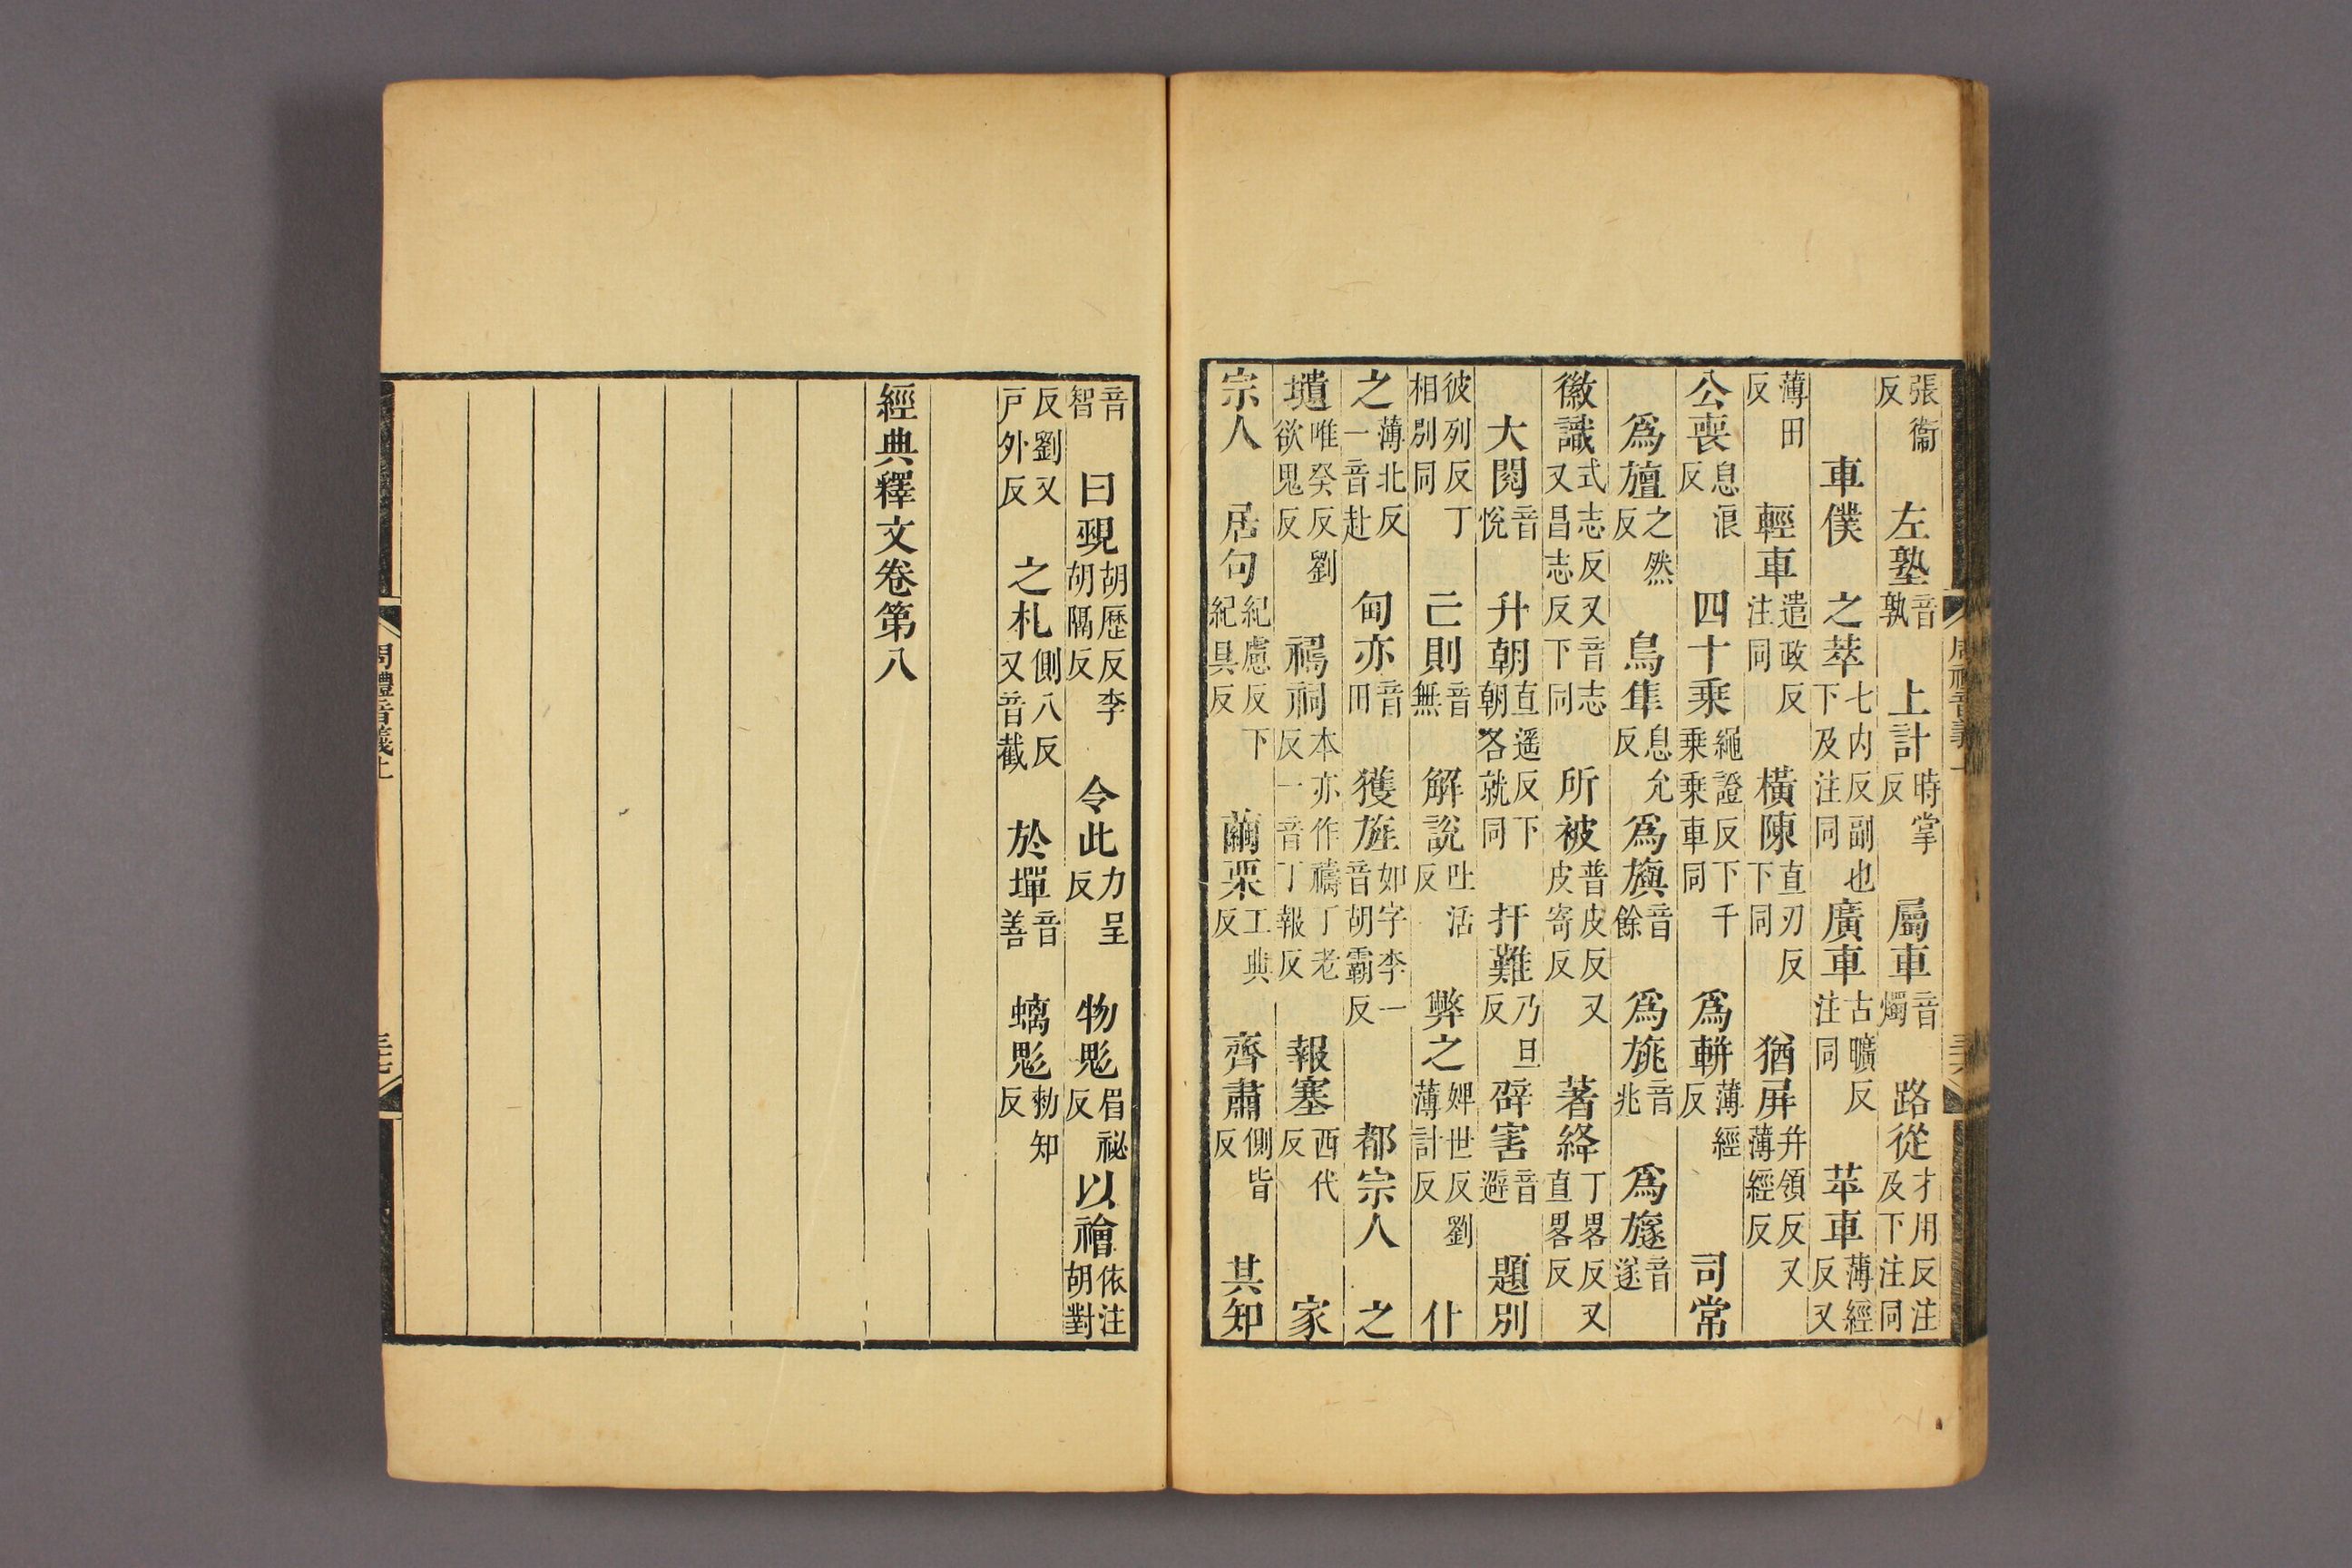 張衞反 左塾音孰 上計時掌反 屬車音燭 路從才用反注及下注同
車僕 之萃七内反副也下及注同 廣車古曠反注同 苹車薄經反又
薄田反 輕車遣政反注同 橫陳直刃反下同 猶屏并領反又薄經反
公喪息浪反 四十乘繩證反下千乘乘車同 爲軿薄經反 司常
爲旜之然反 鳥隼息允反 爲旟音餘 爲旐音兆 爲旞音遂
徽識式志反又音志又昌志反下同 所被普皮反又皮寄反 著絳丁畧反又直畧反
大閱音悅 升朝直遥反下朝各就同 扞難乃旦反 辟害音避 題別
彼列反丁相別同 亡則音無 解說吐活反 弊之婢世反劉薄計反 仆
之薄北反一音赴 甸亦音田 獲旌如字李一音胡霸反 都宗人 之
壝唯癸反劉欲鬼反 禂祠本亦作禱丁老反一音丁報反 報塞西代反 家
宗人 居句紀慮反下紀具反 繭栗工典反 齊肅側皆反 其知
周禮音義上
音智 曰覡胡歷反李胡隔反 令此力呈反 物鬽眉祕反 以禬依注胡對
反劉又戸外反 之札側八反又音截 於墠音善 螭鬽勑知反
經典釋文卷第八
周禮音義上 三十七